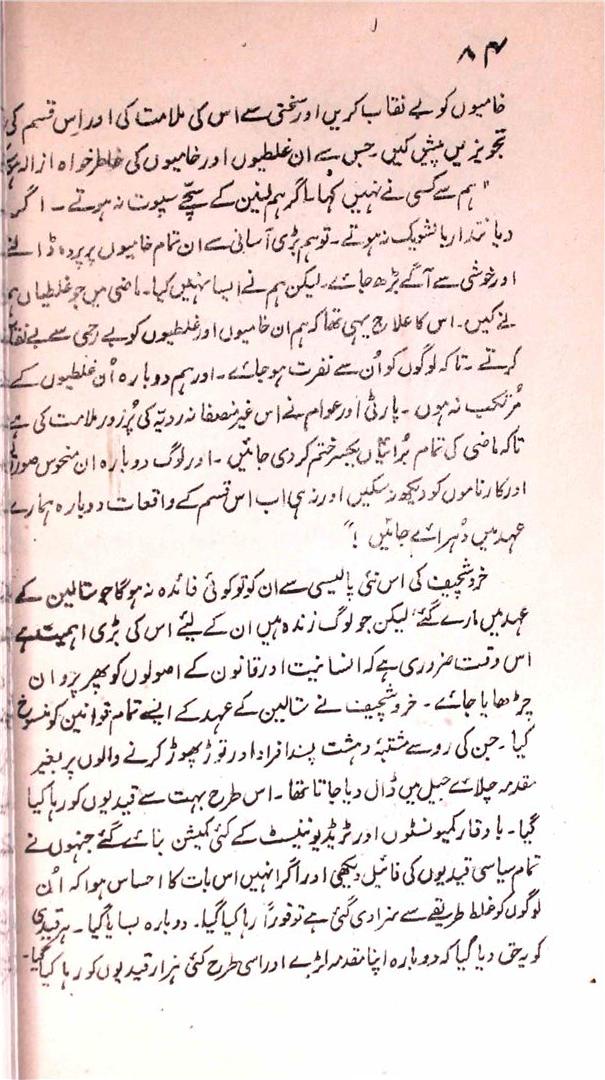 ۸۴
خامیوں کو بے نقاب کریں اور سختی سے اس کی ملامت کی اور اس قسم کی
تجویزیں پیش کیں۔ جس سے ان غلطیوں اور خامیوں کی خاطر خواہ ازالہ
"ہم سے کسی نے نہیں کہا۔ اگر ہم لینن کے سچے سپوت نہ ہوتے۔ اگر
دیانتدار بالشویک نہ ہوتے۔ تو ہم بڑی آسانی سے ان تمام خامیوں پر پردہ ڈالتے
اور خوشی سے آگے بڑھ جاتے۔ لیکن ہم نے ایسا نہیں کیا۔ ماضی میں جو غلطیاں ہم
نے کیں۔ اس کا علاج یہی تھا کہ ہم ان خامیوں اور غلطیوں کو بے رحمی سے بے نقاب
کرتے۔ تاکہ لوگوں کو اُن سے نفرت ہو جائے۔ اور ہم دوبارہ اُن غلطیوں کے
مرتکب نہ ہوں۔ پارٹی اور عوام نے اس غیر منصفانہ ردیّہ کی پُرزور ملامت کی ہے
تاکہ ماضی کی تمام بُرائیاں یکسر ختم کر دی جائیں۔ اور لوگ دوبارہ ان منحوس
اور کارناموں کو دیکھ نہ سکیں اور نہ ہی اب اس قسم کے واقعات دوبارہ ہمارے
عہد میں دُہرائے جائیں!"
خروشچیف کی اس نئی پالیسی سے ان کو تو کوئی فائدہ نہ ہوگا جو سٹالین کے
عہد میں مارے گئے، لیکن جو لوگ زندہ ہیں ان کے لیئے اس کی بڑی اہمیت ہے
اس وقت ضروری ہے کہ انسانیت اور قانون کے اصولوں کو پھر پروان
چڑھایا جائے۔ خروشچیف نے سٹالین کے عہد کے ایسے تمام قوانین کو منسوخ
کیا۔ جن کی رو سے مشتبہ دہشت پسند افراد اور توڑ پھوڑ کرنے والوں پر بغیر
مقدمہ چلائے جیل میں ڈال دیا جاتا تھا۔ اس طرح بہت سے قیدیوں کو رہا کیا
گیا۔ باوقار کمیونسٹوں اور ٹریڈ یونینسٹ کے کئی کمیشن بنائے گئے جنہوں نے
تمام سیاسی قیدیوں کی فائیل دیکھی اور اگر انہیں اس بات کا احساس ہوا کہ اُن
لوگوں کو غلط طریقے سے سزا دی گئی ہے تو فوراً رہا کیا گیا۔ دوبارہ بسایا گیا۔ ہر قیدی
کو یہ حق دیا گیا کہ دوبارہ اپنا مقدمہ لڑے اور اسی طرح کئی ہزار قیدیوں کو رہا کیا گیا۔